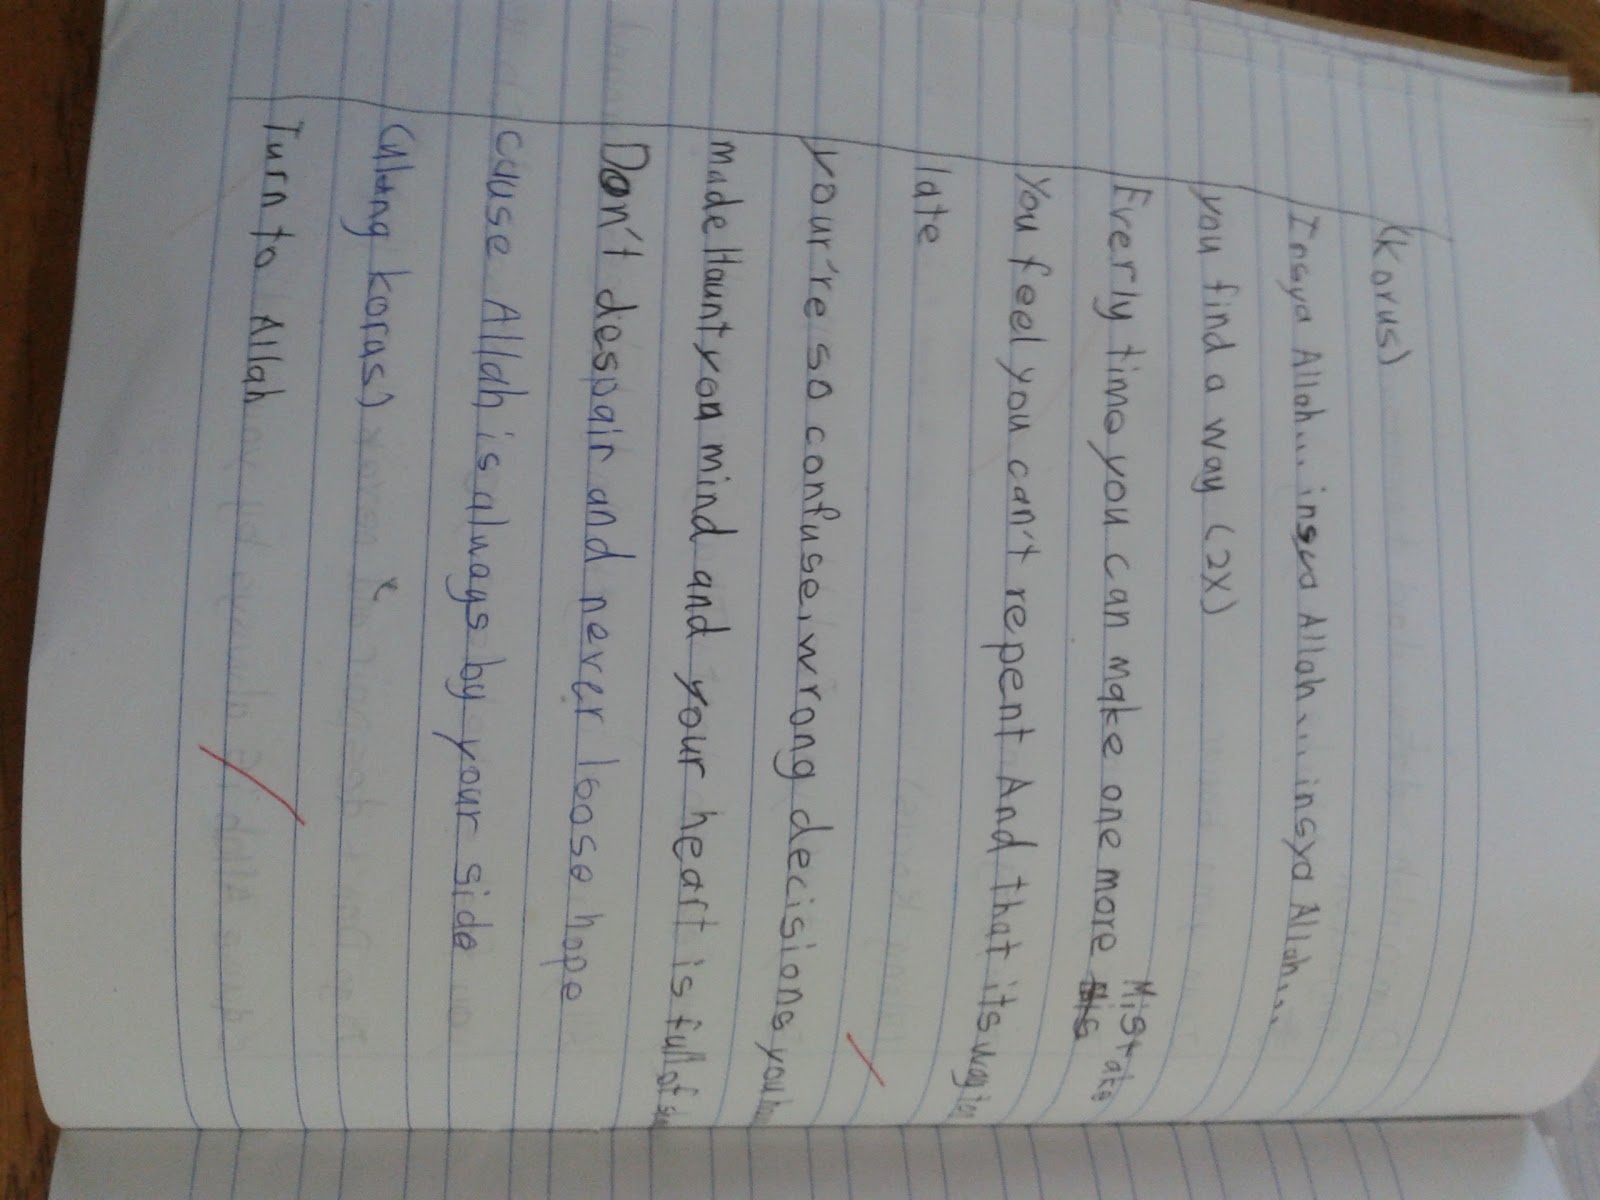 (korus)
Insya Allah... insya Allah.... insya Allah...
you find a way (2x)
Everly time you can make one more Mistake
You feel you can't repent And that its way too
late
your're so confuse, wrong decisions you have
made Haunt you mind and your heart is full of
Don't despair and never loose hope
cause Allah is always by your side
(ulang korus)
Turn to Allah